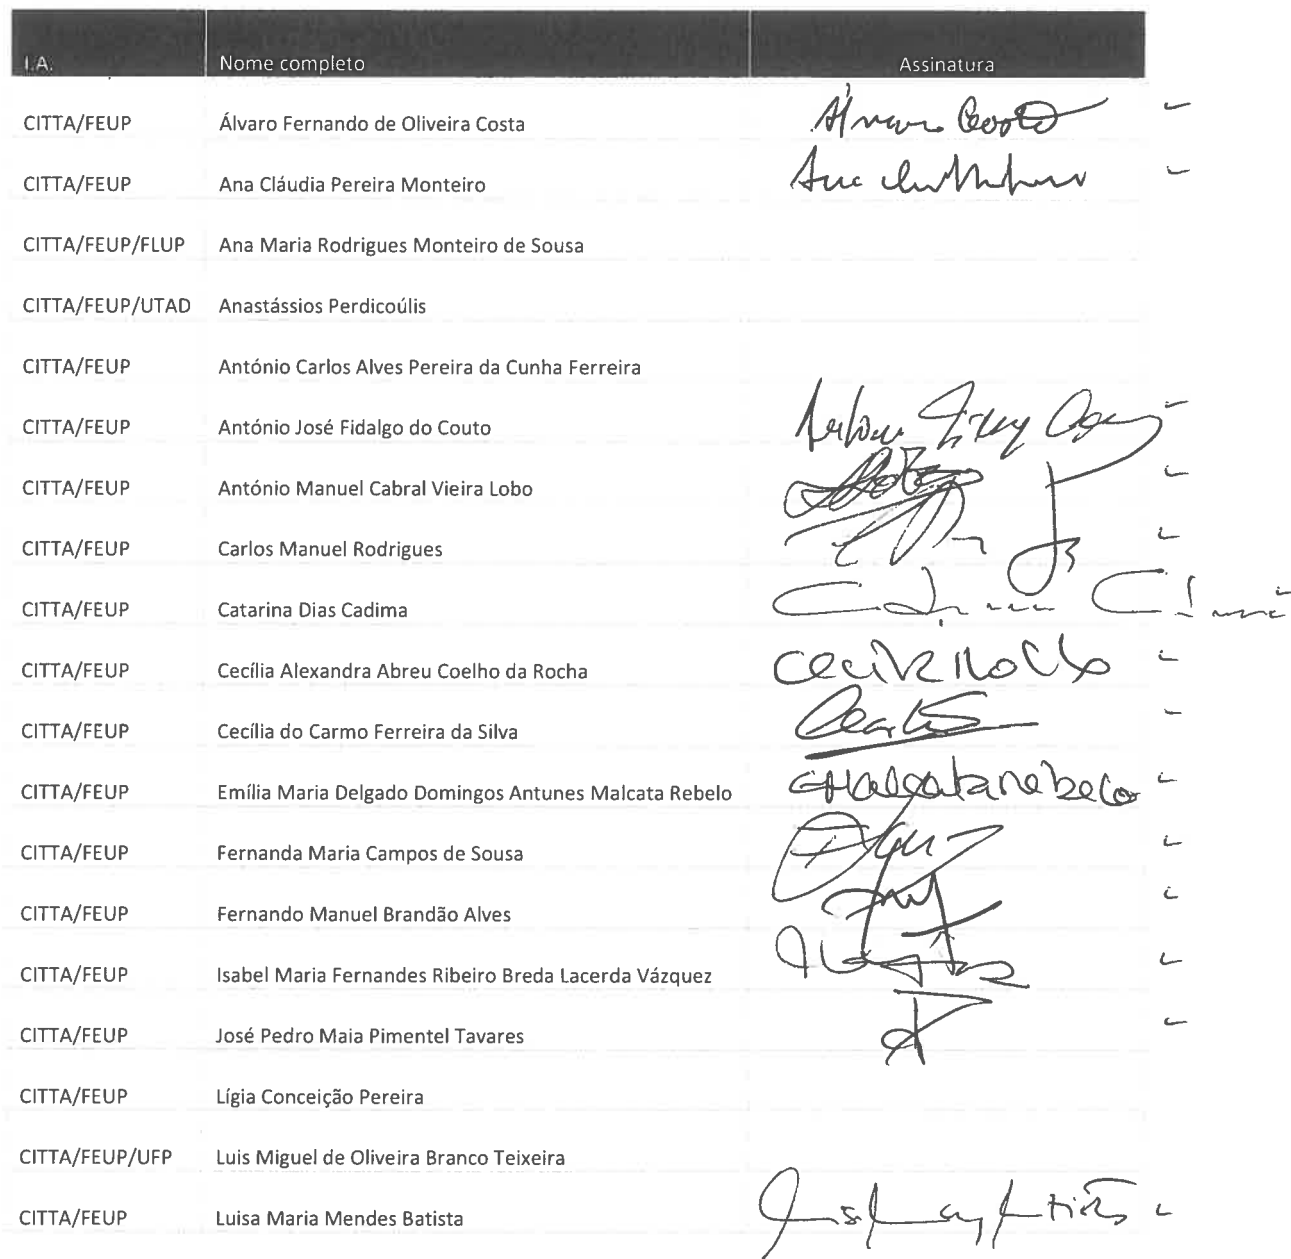 I.A. Nome completo Assinatura
CITTA/FEUP Álvaro Fernando de Oliveira Costa Álvaro Costa
CITTA/FEUP Ana Cláudia Pereira Monteiro Ana
CITTA/FEUP/FLUP Ana Maria Rodrigues Monteiro de Sousa
CITTA/FEUP/UTAD Anastássios Perdicoúlis
CITTA/FEUP António Carlos Alves Pereira da Cunha Ferreira
CITTA/FEUP António José Fidalgo do Couto
CITTA/FEUP António Manuel Cabral Vieira Lobo
CITTA/FEUP Carlos Manuel Rodrigues
CITTA/FEUP Catarina Dias Cadima
CITTA/FEUP Cecília Alexandra Abreu Coelho da Rocha Cecília Rocha
CITTA/FEUP Cecília do Carmo Ferreira da Silva
CITTA/FEUP Emília Maria Delgado Domingos Antunes Malcata Rebelo EMalcata Rebelo
CITTA/FEUP Fernanda Maria Campos de Sousa
CITTA/FEUP Fernando Manuel Brandão Alves
CITTA/FEUP Isabel Maria Fernandes Ribeiro Breda Lacerda Vázquez
CITTA/FEUP José Pedro Maia Pimentel Tavares
CITTA/FEUP Lígia Conceição Pereira
CITTA/FEUP/UFP Luis Miguel de Oliveira Branco Teixeira
CITTA/FEUP Luisa Maria Mendes Batista